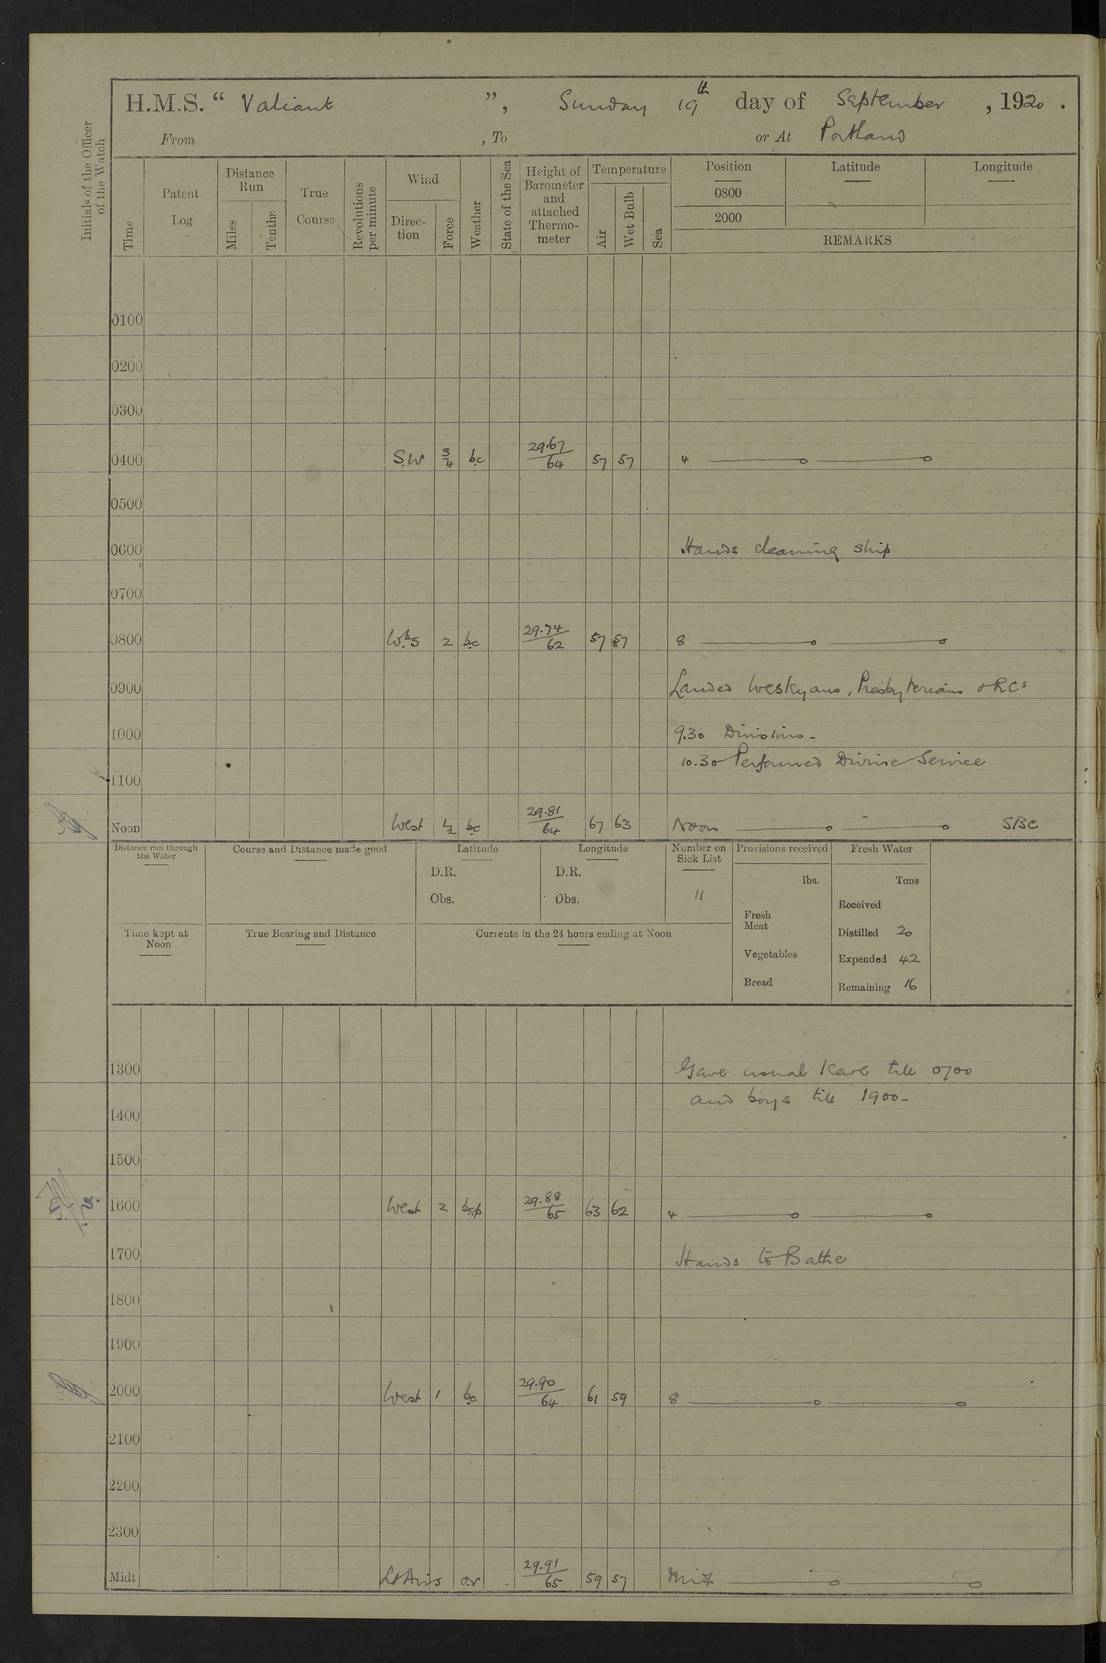 H.M.S. “ Valiant ”, Sunday 19th day of September, 1920.
From , To or At Portland
Initials of the Officer of the Watch
Time
Patent Log
Distance Run
Miles
Tenths
True Course
Revolutions per minute
Wind
Direction
Force
Weather
State of the Sea
Height of Barometer and attached Thermometer
Temperature
Air
Wet Bulb
Sea
Position Latitude Longitude
0800
2000
REMARKS
0100
0200
0300
0400 S.W 3/4 bc 29.67/64 57 57 4
0500
0600 Hands cleaning ship
0700
0800 WbS 2 bc 29.74/62 57 57 8
0900 Landed Wesleyans, Presbyterians & RCs
1000 9.30 Divisions-
10.30 Performed Divine Service
1100
Noon West 1/2 bc 29.81/64 67 63 Noon SBC
Distance run through the Water
Course and Distance made good
Latitude
D.R.
Obs.
Longitude
D.R.
Obs.
Number on Sick List
11
Provisions received
lbs.
Fresh Meat
Vegetables
Bread
Fresh Water
Tons
Received
Distilled 20
Expended 42
Remaining 16
Time kept at Noon
True Bearing and Distance
Currents in the 24 hours ending at Noon
1300 Gave usual leave till 0700
and boys till 1900-
1400
1500
1600 West 2 bcp 29.88/65 63 62 4
1700 Hands to Bathe
1800
1900
2000 West 1 bc 29.90/64 61 59 8
2100
2200
2300
Midt Lt Airs or 29.91/65 59 57 Midt